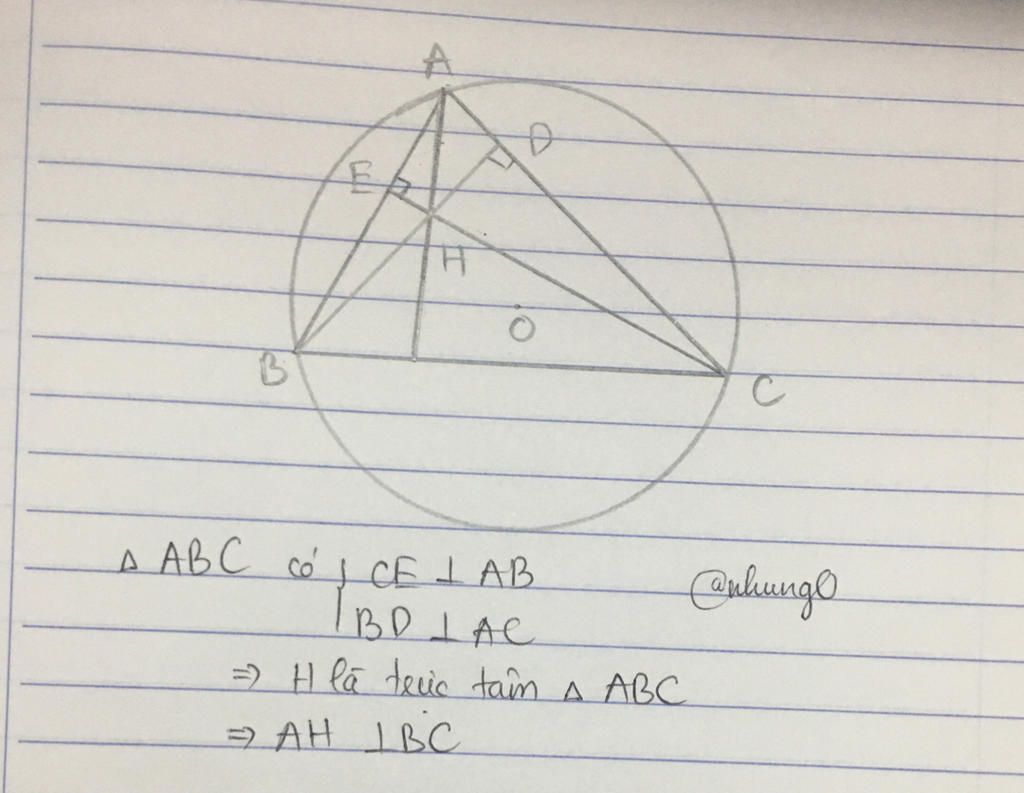 A
D
E
H
O
B
C
Δ ABC có { CE ⊥ AB
BD ⊥ AC
@nhung0
⇒ H là trực tâm Δ ABC
⇒ AH ⊥ BC